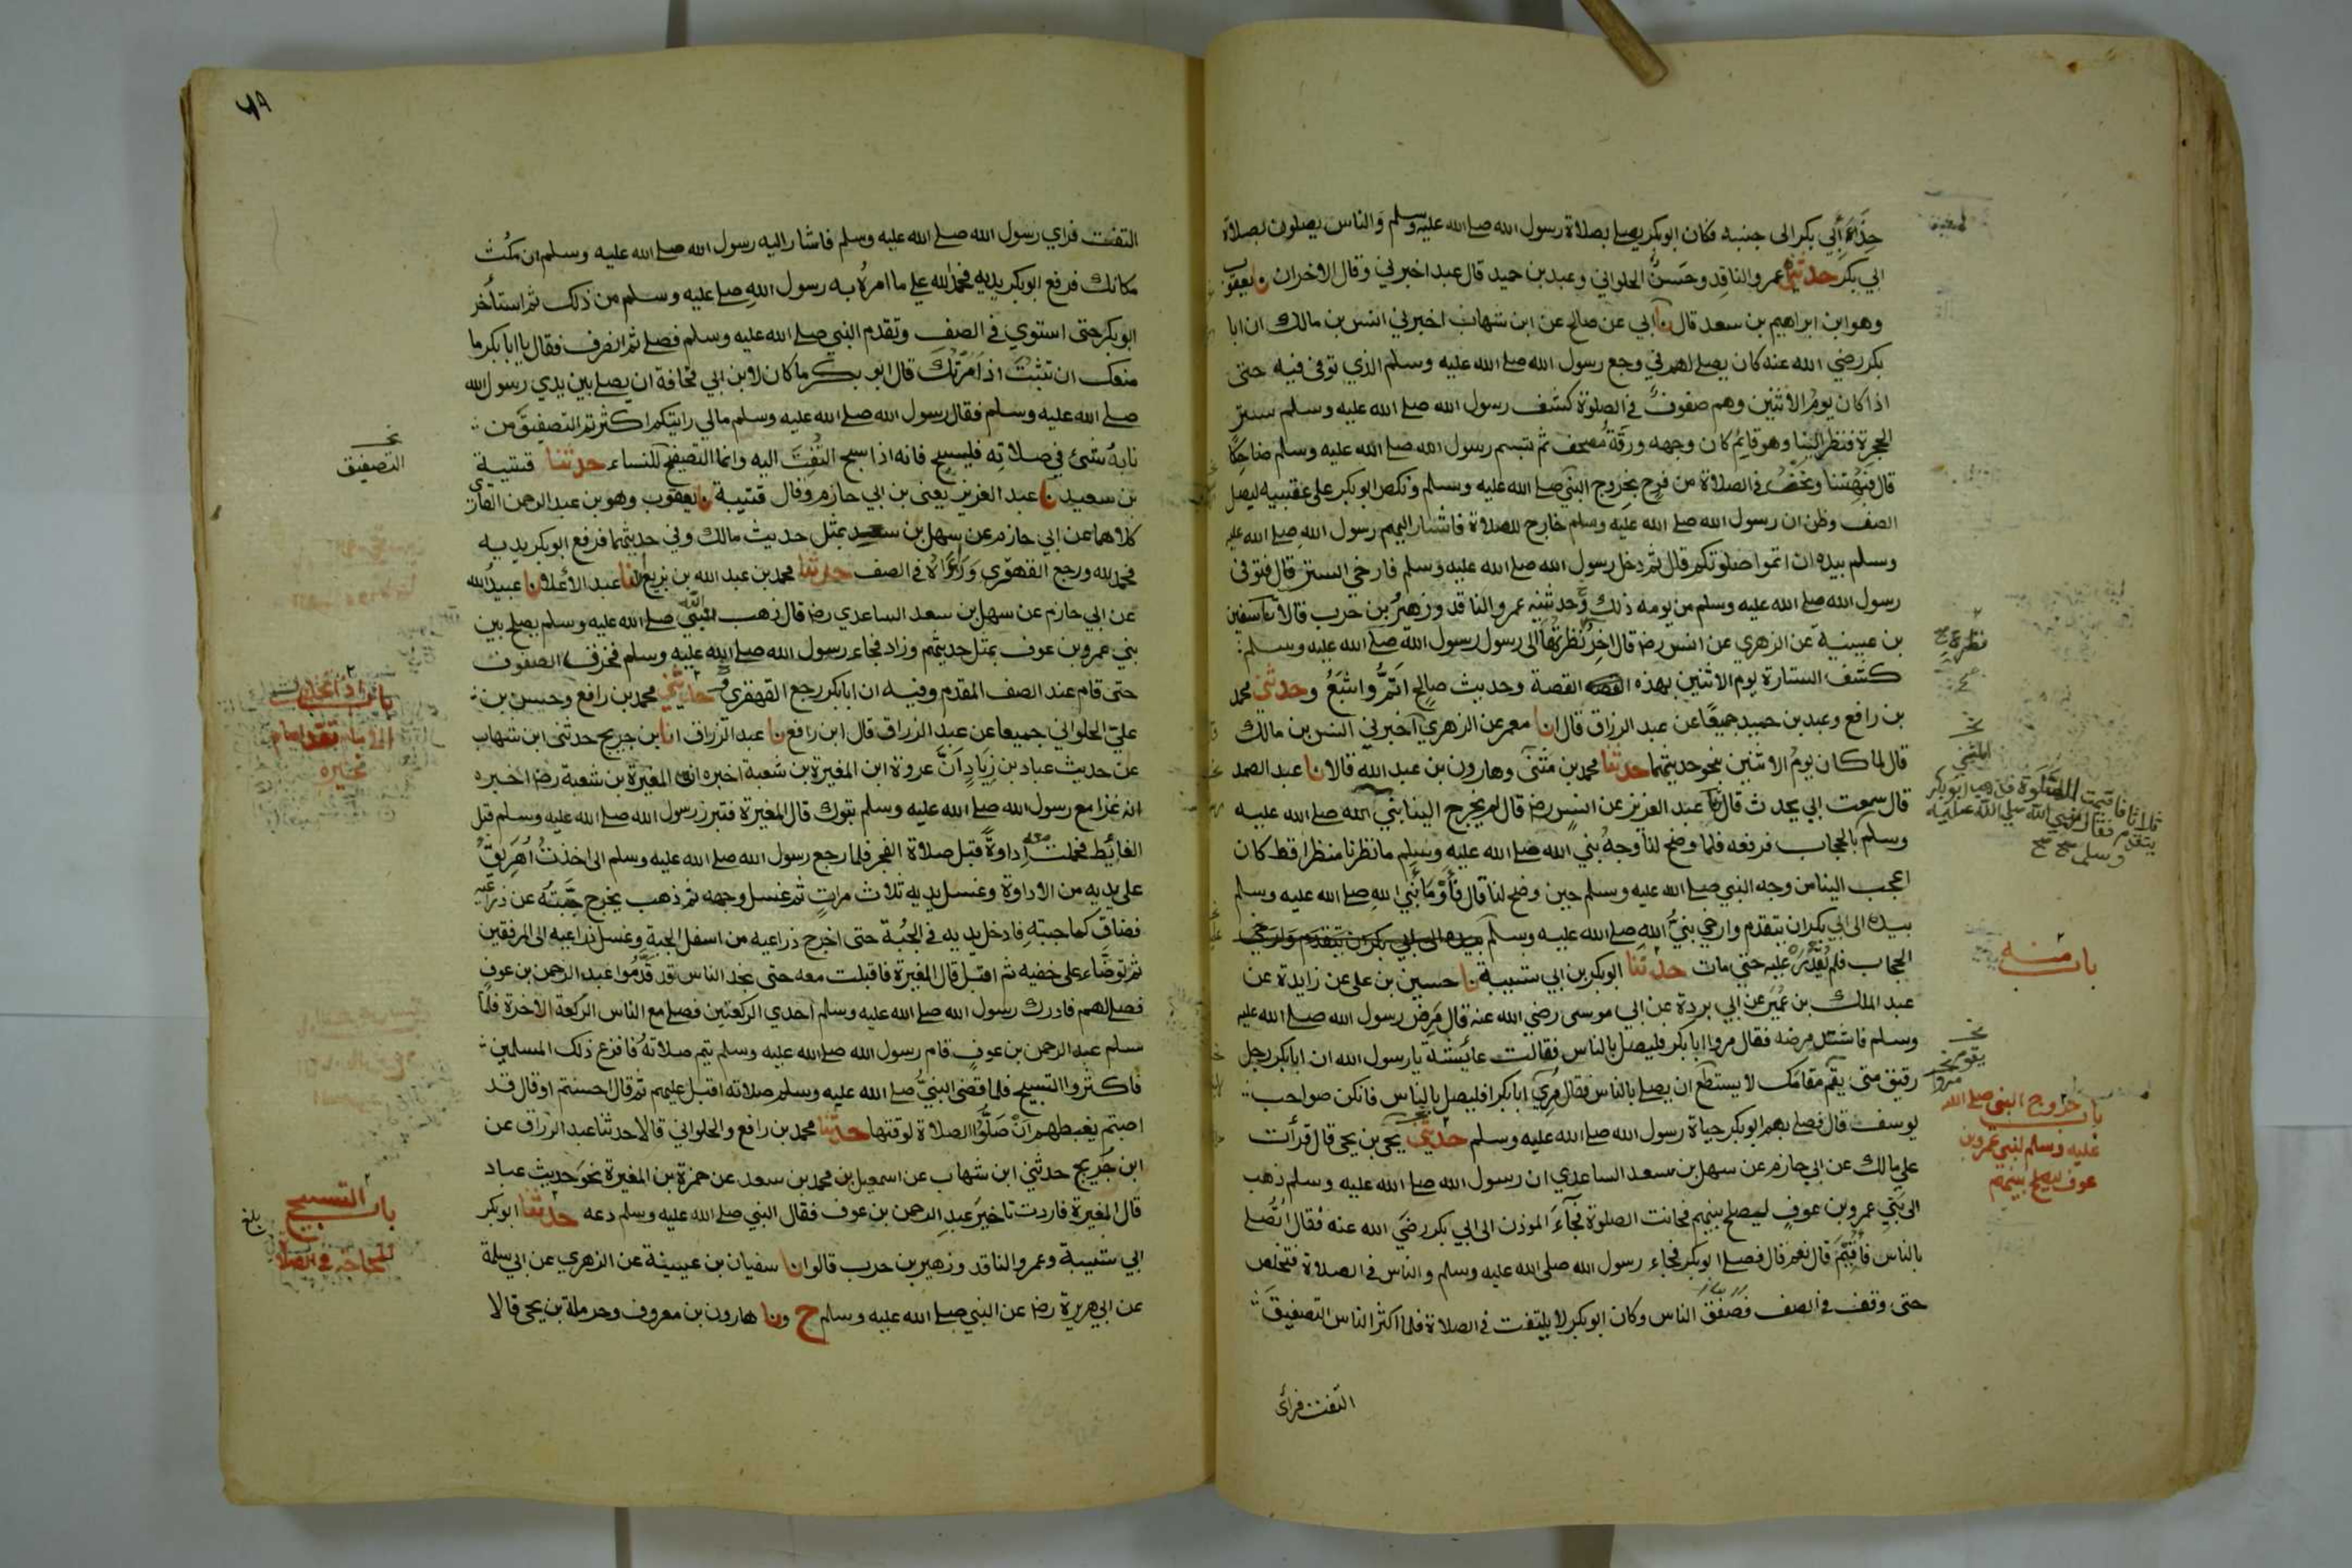 حذاء أبي بكر الى جنبه فكان ابوبكر يصلي بصلاة رسول الله صلى الله عليه وسلم والناس يصلون بصلاة
ابي بكر حدثني عمرو الناقد وحسن الحلواني وعبد بن حميد قال عبد اخبرني وقال الاخران نا يعقوب
وهو ابن ابراهيم بن سعد قال نا ابي عن صالح عن ابن شهاب اخبرني انس بن مالك ان ابا
بكر رضي الله عنه كان يصلي لهم في وجع رسول الله صلى الله عليه وسلم الذي توفى فيه حتى
اذا كان يوم الاثنين وهم صفوف في الصلوة كشف رسول الله صلى الله عليه وسلم ستر
الحجرة فنظر الينا وهو قايم كان وجهه ورقة مصحف ثم تبسم رسول الله صلى الله عليه وسلم ضاحكا
قال فبهتنا ونحن في الصلاة من فرح بخروج النبي صلى الله عليه وسلم ونكص ابوبكر على عقبيه ليصل
الصف وظن ان رسول الله صلى الله عليه وسلم خارج للصلاة فاشار اليهم رسول الله صلى الله عليه
وسلم بيده ان اتموا صلوتكم قال ثم دخل رسول الله صلى الله عليه وسلم فارخي الستر قال فتوفى
رسول الله صلى الله عليه وسلم من يومه ذلك وحدثنيه عمرو الناقد وزهير بن حرب قالا نا سفين
بن عيينة عن الزهري عن انس رضـ قال اخر نظرة نظرتها الى رسول الله صلى الله عليه وسلم
كشف الستارة يوم الاثنين بهذه القصة وحديث صالح اتم واشبع وحدثني محمد
بن رافع وعبد بن حميد جميعا عن عبد الرزاق قال انا معمر عن الزهري اخبرني انس بن مالك
قال لما كان يوم الاثنين بنحو حديثهما حدثنا محمد بن مثنى وهارون بن عبد الله قالا نا عبد الصمد
قال سمعت ابي يحدث قال نا عبد العزيز عن انس رضـ قال لم يخرج الينا نبي الله صلى الله عليه
وسلم بالحجاب فرفعه فلما وضح لنا وجه نبي الله صلى الله عليه وسلم ما نظرنا منظرا قط كان
اعجب الينا من وجه النبي صلى الله عليه وسلم حين وضح لنا قال فأومأ نبي الله صلى الله عليه وسلم
بيده الى ابي بكر ان يتقدم وارخي نبي الله صلى الله عليه وسلم بيده الى ابي بكر ان يتقدم وارخى
الحجاب فلم نقدر عليه حتي مات حدثنا ابوبكر بن ابي شيبة نا حسين بن علي عن زايدة عن
عبد الملك بن عمير عن ابي بردة عن ابي موسى رضي الله عنه قال مرض رسول الله صلى الله عليه
وسلم فاشتد مرضه فقال مروا ابابكر فليصل بالناس فقالت عائشة يا رسول الله ان ابابكر رجل
رقيق متى يقم مقامك لا يستطع ان يصلي بالناس فقال مري ابابكر فليصل بالناس فانكن صواحب
يوسف قال فصلي بهم ابوبكر حياة رسول الله صلى الله عليه وسلم حدثني يحيى بن يحيى قال قرأت
علي مالك عن ابي حازم عن سهل بن سعد الساعدي ان رسول الله صلى الله عليه وسلم ذهب
الى بني عمرو بن عوف ليصلح بينهم فحانت الصلوة فجاء الموذن الى ابي بكر رضي الله عنه فقال اتصلي
بالناس فأقيم قال نعم قال فصلى ابوبكر فجاء رسول الله صلى الله عليه وسلم والناس في الصلاة فتخلص
حتى وقف في الصف فصفق الناس وكان ابوبكر لا يلتفت في الصلاة فلما اكثر الناس التصفيق
التفت فرأى
نظرة
قلت
ثلاثا فاقيمت الصلوة فذهب ابوبكر
يتقدم فقال نبي الله صلى الله عليه
وسلم صح
باب منه
يقوم
مروا
باب خروج النبي صلى الله
عليه وسلم لبني عمرو بن
عوف ليصلح بينهم
٧٩
التفت فراي رسول الله صلى الله عليه وسلم فاشار اليه رسول الله صلى الله عليه وسلم ان مكث
مكانك فرفع ابوبكر يديه فحمد الله على ما امره به رسول الله صلى عليه وسلم من ذلك ثم استأخر
ابوبكر حتى استوي في الصف وتقدم النبي صلى الله عليه وسلم فصلي ثم انصرف فقال يا ابا بكر ما
منعك ان تثبت اذ امرتك قال ابو بكر ما كان لابن ابي قحافة ان يصلي بين يدي رسول الله
صلى الله عليه وسلم فقال رسول الله صلى الله عليه وسلم مالي رايتكم اكثرتم التصفيق من
نابه شئ في صلاته فليسبح فانه اذا سبح التفت اليه وانما التصفيح للنساء حدثنا قتيبة
بن سعيد نا عبد العزيز يعني بن ابي حازم وقال قتيبة نا يعقوب وهو بن عبد الرحمن القاري
كلاهما عن ابي حازم عن سهل بن سعد بمثل حديث مالك وفي حديثهما فرفع ابوبكر يديه
فحمد الله ورجع القهقري وراءه في الصف حدثنا محمد بن عبد الله بن بزيع انا عبد الأعلى نا عبيد الله
عن ابي حازم عن سهل بن سعد الساعدي رضـ قال ذهب النبي صلى الله عليه وسلم يصلح بين
بني عمرو بن عوف بمثل حديثهم وزاد فجاء رسول الله صلى الله عليه وسلم فخرق الصفوف
حتى قام عند الصف المقدم وفيه ان ابابكر رجع القهقري حدثني محمد بن رافع وحسن بن
علي الحلواني جميعا عن عبد الرزاق قال ابن رافع نا عبد الرزاق انا بن جريج حدثني ابن شهاب
عن حديث عباد بن زياد أن عروة ابن المغيرة بن شعبة اخبره ان المغيرة بن شعبة رضـ اخبره
انه غزا مع رسول الله صلى الله عليه وسلم تبوك قال المغيرة فتبرز رسول الله صلى الله عليه وسلم قبل
الغائط فحملت معه إداوة قبل صلاة الفجر فلما رجع رسول الله صلى الله عليه وسلم الى اخذت اهريق
على يديه من الاداوة وغسل يديه ثلاث مرات ثم غسل وجهه ثم ذهب يخرج جبته عن ذراعيه
فضاق كما جبته فادخل يديه في الجبة حتى اخرج ذراعيه من اسفل الجبة وغسل ذراعيه الى المرفقين
ثم توضاء على خفيه ثم اقبل قال المغيرة فاقبلت معه حتى نجد الناس قد قدموا عبد الرحمن بن عوف
فصلى لهم فادرك رسول الله صلى الله عليه وسلم احدي الركعتين فصلي مع الناس الركعة الاخرة فلما
سلم عبد الرحمن بن عوف قام رسول الله صلى الله عليه وسلم يتم صلاته فافزع ذلك المسلمين
فاكثروا التسبيح فلما قضى النبي صلى الله عليه وسلم صلاته اقبل عليهم ثم قال احسنتم او قال قد
اصبتم يغبطهم أن صلوا الصلاة لوقتها حدثنا محمد بن رافع والحلواني قالا حدثنا عبد الرزاق عن
ابن جريج حدثني ابن شهاب عن اسمعيل بن محمد بن سعد عن حمزة بن المغيرة نحو حديث عباد
قال المغيرة فاردت تاخير عبد الرحمن بن عوف فقال النبي صلى الله عليه وسلم دعه حدثنا ابوبكر
ابي شيبة وعمرو الناقد وزهير بن حرب قالوا نا سفيان بن عيينة عن الزهري عن ابي سلمة
عن ابي هريرة رضـ عن النبي صلى الله عليه وسلم ح ونا هارون بن معروف وحرملة بن يحيى قالا
التصفيق
باب اذا تخلف
الامام تقدم امام
غيره
باب التسبيح
للحاجة في الصلاة
بلغ